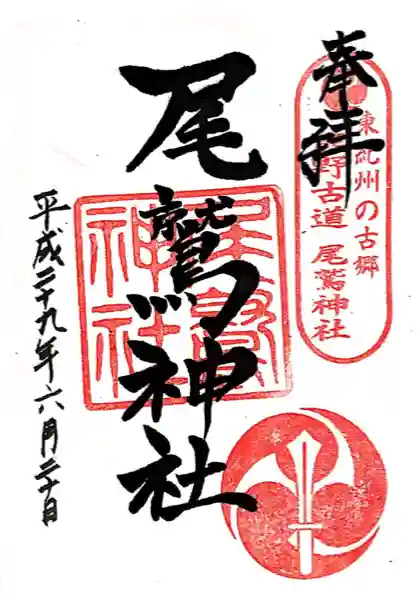 奉拝
東紀州の古郷
熊野古道 尾鷲神社
尾鷲神社
尾鷲神社
平成二十九年六月二十日